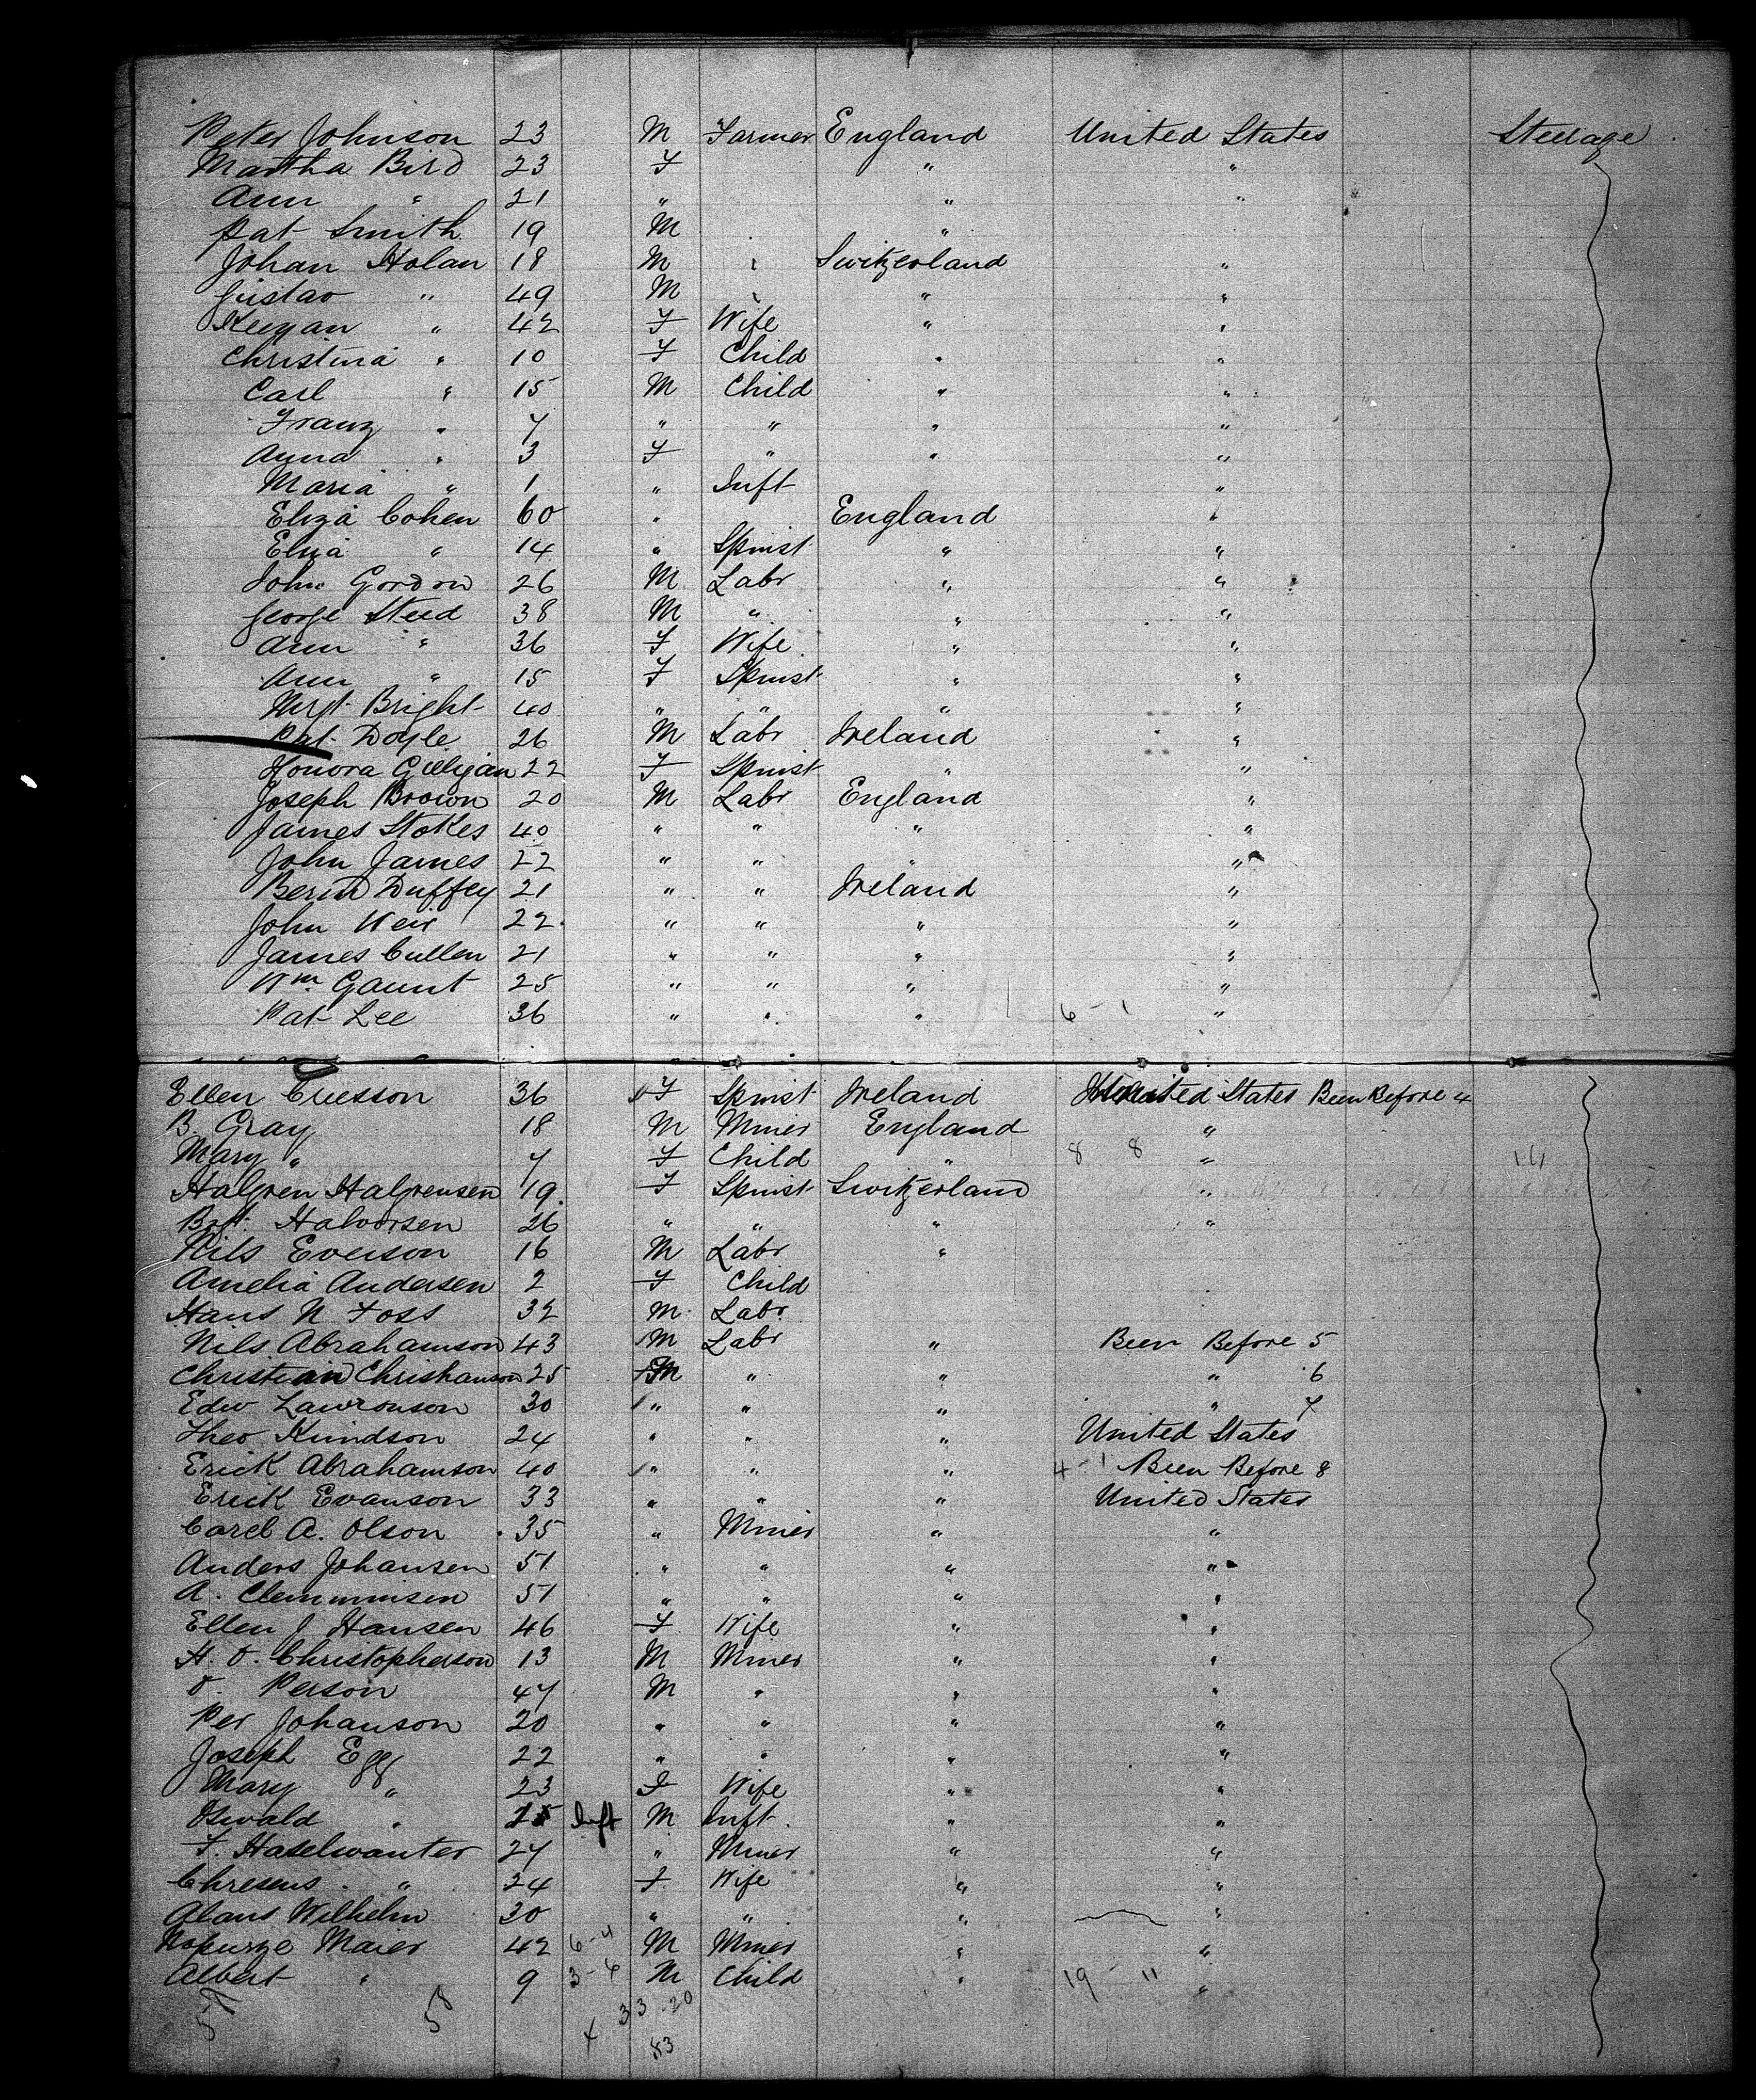 Peter Johnson 23 M Farmer England United States Steerage
Martha Bird 23 F " "
Ann " 21 " " "
Pat Smith 19 M "
Johan Holan 18 M " Switzerland "
Gustav " 49 M " " "
" 42 F Wife " "
Christina " 10 F Child " "
Carl " 15 M Child " "
Franz " 7 " " " "
Anna " 3 F " " "
Maria " 1 " Inft "
Eliza Cohen 60 " England "
" 14 " Spinst " "
John Gordon 26 M Labr " "
George Steed 38 M " " "
Ann " 36 F Wife " "
Ann " 15 F Spinst " "
Mrgt Bright 40 " " " "
Pat Doyle 26 M Labr Ireland "
Honora Gilligan 22 F Spinst " "
Joseph Brown 20 M Labr England "
James Stokes 40 " " " "
John James 22 " " " "
Bernd Duffey 21 " " Ireland "
John Weir 22 " " " "
James Cullen 21 " " " "
Wm Gaunt 25 " " " "
Pat Lee 36 " " " 6 - 1 "
Ellen 36 F Spinst Ireland United States Been Before 4
B. Gray 18 M Miner England "
Mary " 7 F Child " 8 8 "
Halgren Halgrensen 19 F Spinst Switzerland "
Brgt. Halvorsen 26 " " " "
Nils Everson 16 M Labr "
Amelia Andersen 2 F Child
Hans N Foss 32 M Labr
Nils Abrahamson 43 M Labr " Been Before 5
Christian Christianson 25 M " " " 6
Edw Lawronson 30 " " " " 7
Theo Knndson 24 " " " United States
Erick Abrahamson 40 " " " 4 - 1 Been Before 8
Erick Evanson 33 " " " United States
Carel A. Olson 35 " Miner " "
Anders Johansen 51 " " " "
A. Clemminsen 51 " " " "
Ellen J Hansen 46 F Wife " "
H. O. Christopherson 13 M Miner " "
O. Person 47 M " " "
Per Johanson 20 " " " "
Joseph Egg 22 " " " "
Mary " 23 F Wife " "
Oswald " Inft M Inft " "
F. Haselwanter 27 " Miner " "
Chresens " 24 F Wife " "
Alans Wilhelm 30 " " " "
Maier 42 6-4 M Miner " "
Albert " 9 3-6 M Child " 19 - 11 "
58 33 - 20
83